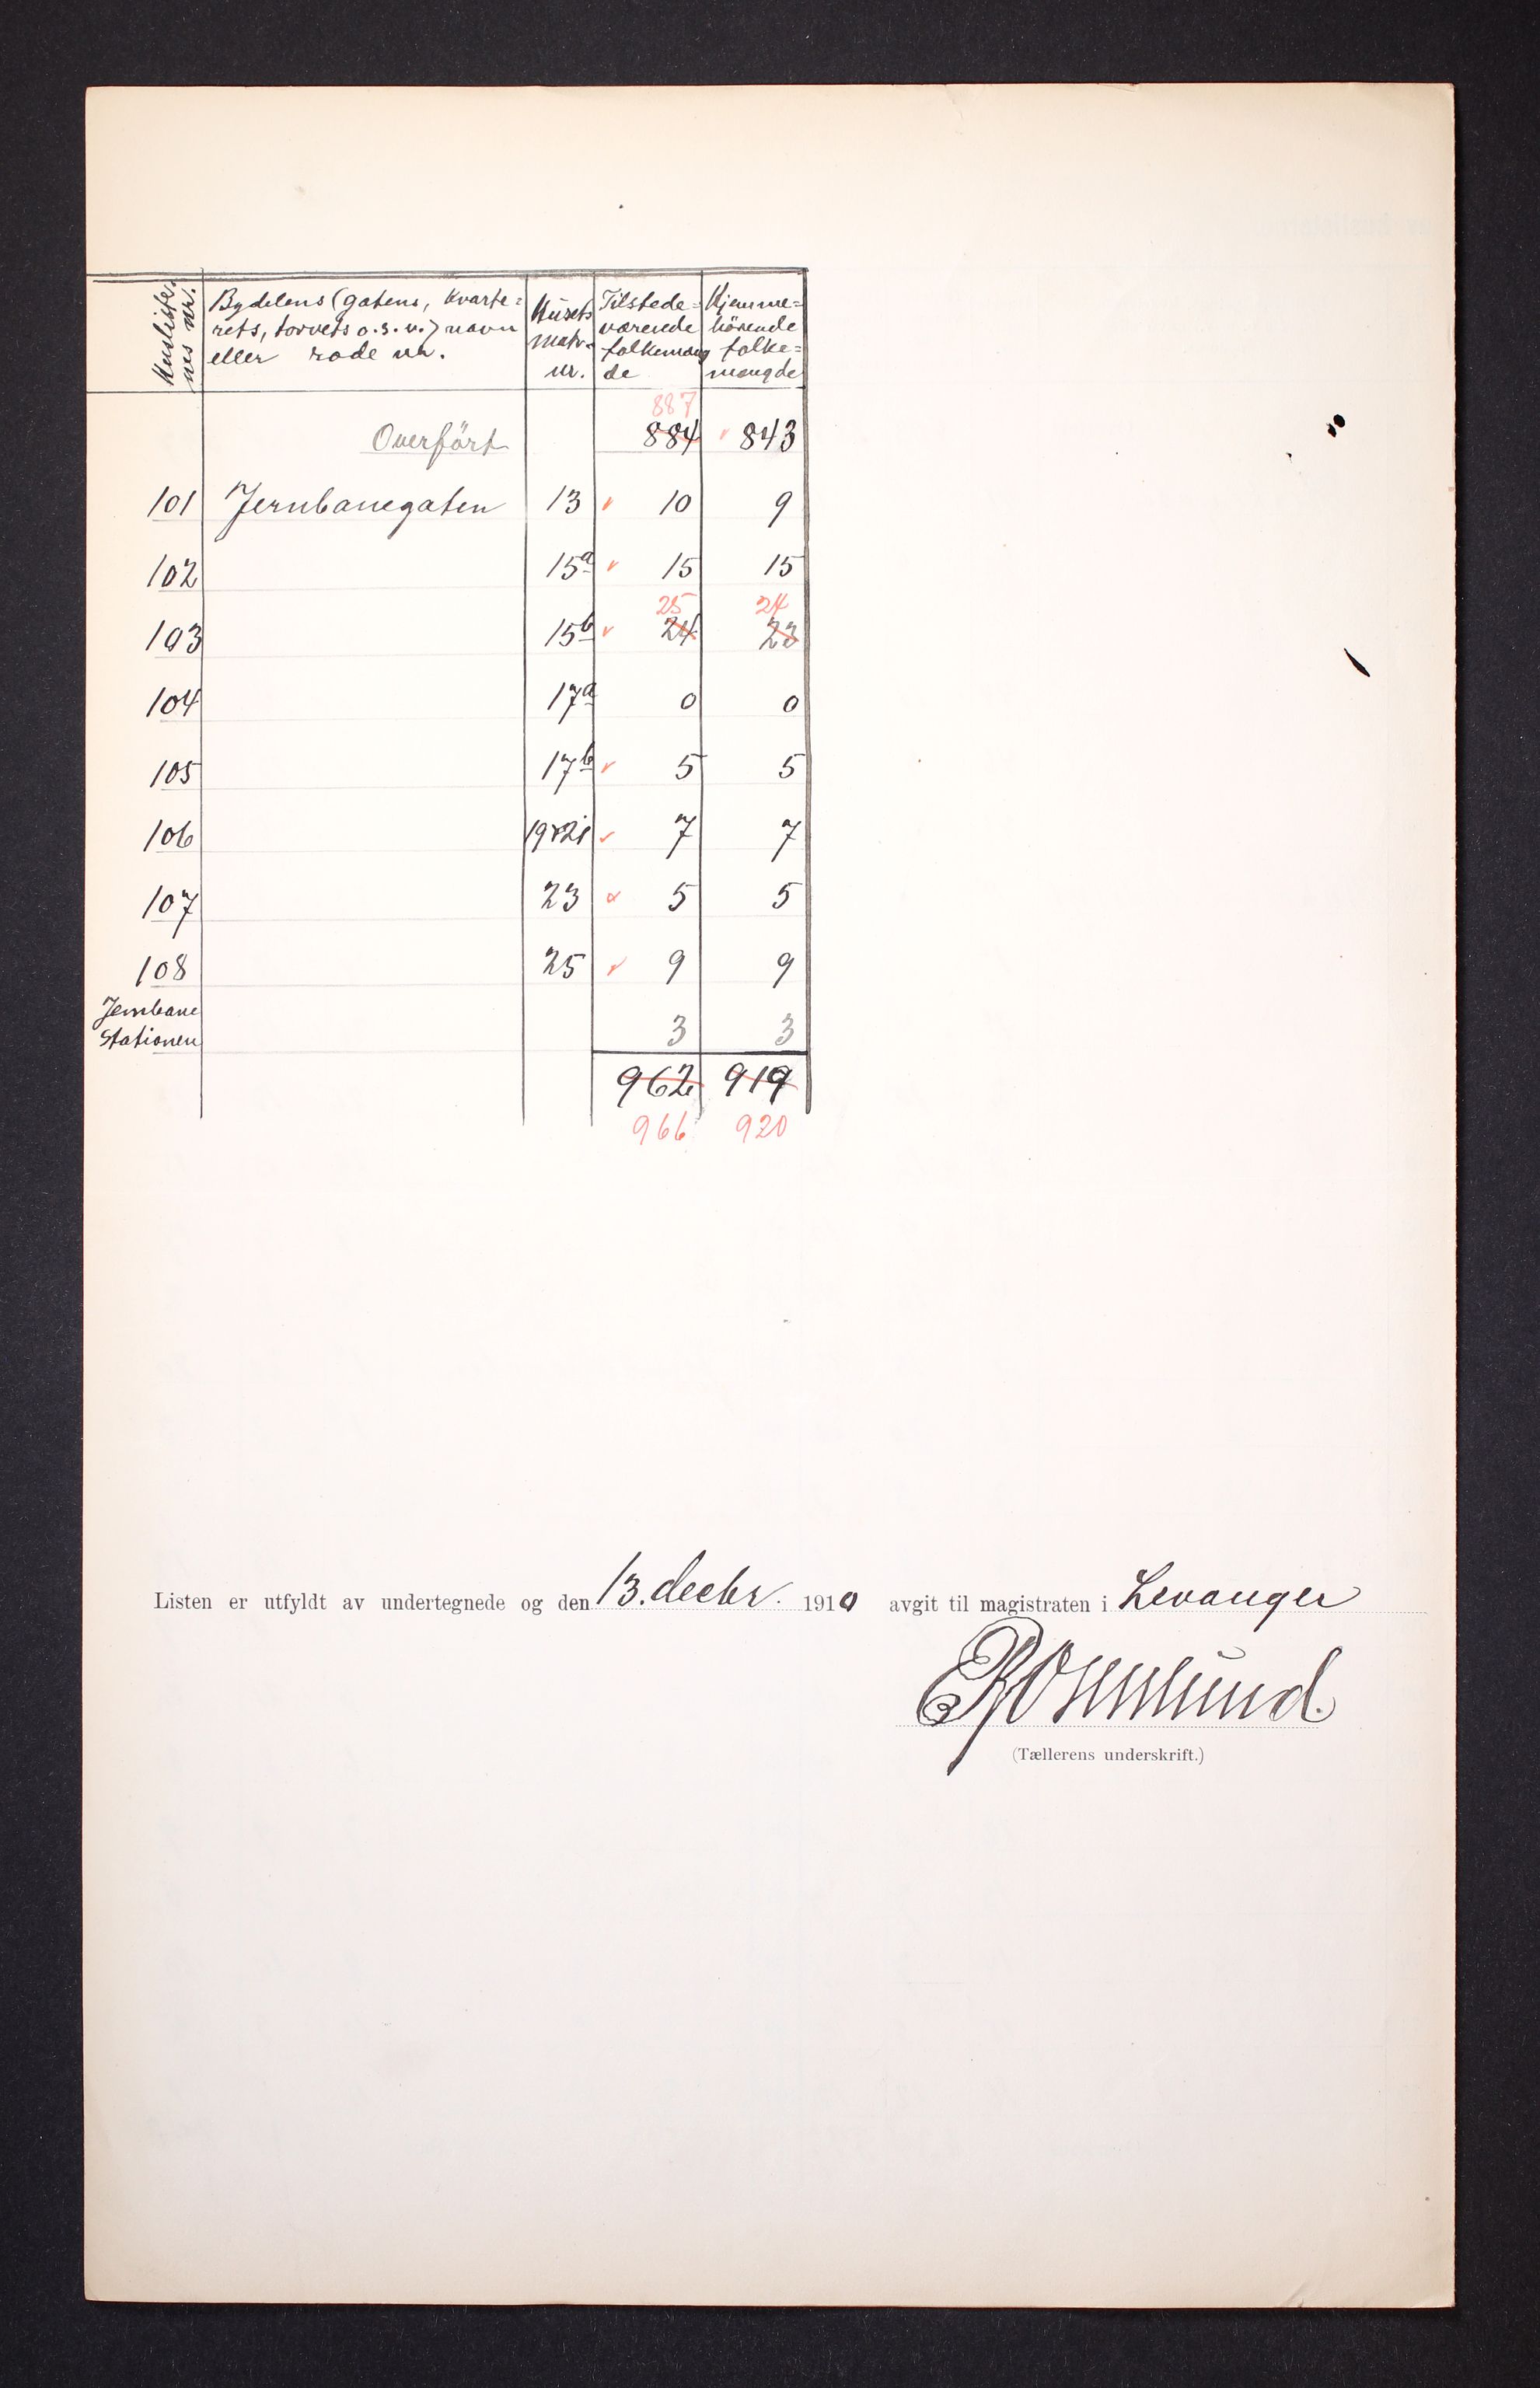 Huslister-
nes nr.
Bydelens (gatens, kvarte-
rets, torvets o.s.v.) navn
eller rode nr.
Husets
matr.
nr.
Tilstede-
værende
folkemæng
de
Hjemme-
hörende
folke-
mængde
887
Overfört 884 843
101 Jernbanegaten 13 10 9
102 15a 15 15
25 24
103 15b 24 23
104 17a 0 0
105 17b 5 5
106 19&21 7 7
107 23 5 5
108 25 9 9
Jernbane
Stationen 3 3
962 919
966 920
Listen er utfyldt av undertegnede og den 13. decbr. 1910 avgit til magistraten i Levanger
(Tællerens underskrift.)